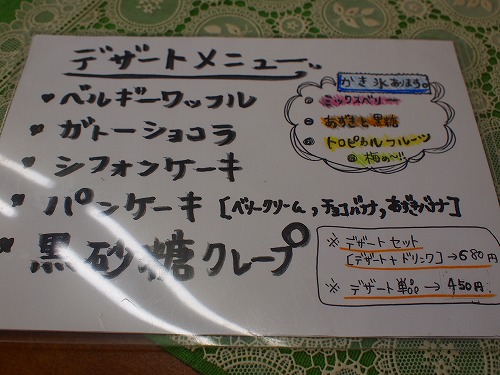 デザートメニュー
・ベルギーワッフル
・ガトーショコラ
・シフォンケーキ
・パンケーキ [ベリークリーム, チョコバナナ, あずきバナナ]
・黒砂糖クレープ
かき氷あります。
◎ミックスベリー
◎あずきと黒糖
◎トロピカルフルーツ
◎梅め〜!!
※デザートセット
[デザート+ドリンク]→680円
※デザート単品→450円